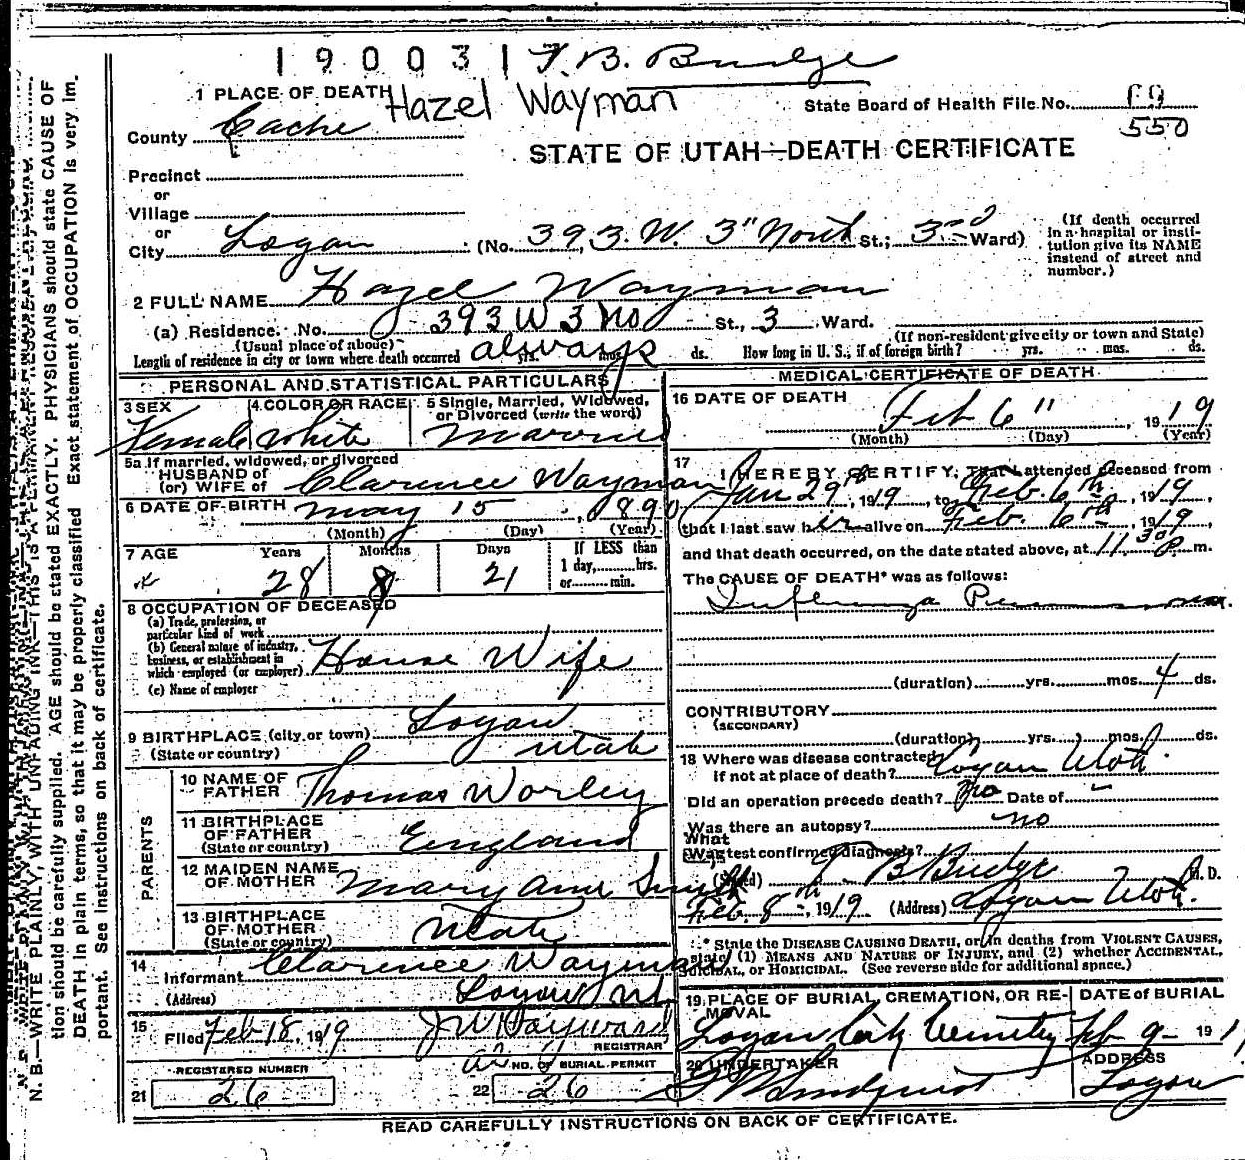 190031 T. B. Budge
Hazel Wayman
1 PLACE OF DEATH
State Board of Health File No. 59
550
County Cache
STATE OF UTAH—DEATH CERTIFICATE
Precinct
or
Village
or
City Logan (No. 393 W. 3" North St.; 3rd Ward)
(If death occurred
in a hospital or insti-
tution give its NAME
instead of street and
number.)
2 FULL NAME Hazel Wayman
(a) Residence. No. 393 W 3 No St., 3 Ward.
(Usual place of abode) (If non-resident give city or town and State)
Length of residence in city or town where death occurred always yrs. mos. ds. How long in U. S., if of foreign birth? yrs. mos. ds.
PERSONAL AND STATISTICAL PARTICULARS
3 SEX Female
4 COLOR OR RACE White
5 Single, Married, Widowed,
or Divorced (write the word)
Married
5a If married, widowed, or divorced
HUSBAND of
(or) WIFE of Clarence Wayman
6 DATE OF BIRTH May 15, 1890
(Month) (Day) (Year)
7 AGE Years Months Days If LESS than
1 day, hrs.
or min.
28 8 21
8 OCCUPATION OF DECEASED
(a) Trade, profession, or
particular kind of work
(b) General nature of industry,
business, or establishment in
which employed (or employer) House Wife
(c) Name of employer
9 BIRTHPLACE (city or town) Logan
(State or country) Utah
PARENTS
10 NAME OF
FATHER Thomas Worley
11 BIRTHPLACE
OF FATHER
(State or country) England
12 MAIDEN NAME
OF MOTHER Mary Ann Smith
13 BIRTHPLACE
OF MOTHER
(State or country) Utah
14 Informant Clarence Wayman
(Address) Logan Ut
15 Filed Feb 18, 1919 J W Hayward
REGISTRAR
REGISTERED NUMBER
21 26
NO. OF BURIAL PERMIT
22 26
MEDICAL CERTIFICATE OF DEATH
16 DATE OF DEATH Feb 6", 1919
(Month) (Day) (Year)
17 I HEREBY CERTIFY, That I attended deceased from
Jan 29th 1919, to Feb. 6th, 1919,
that I last saw her alive on Feb. 6th, 1919,
and that death occurred, on the date stated above, at 11 30 P m.
The CAUSE OF DEATH* was as follows:
Influenza Pneumonia.
(duration) yrs. mos. 4 ds.
CONTRIBUTORY
(SECONDARY)
(duration) yrs. mos. ds.
18 Where was disease contracted
if not at place of death? Logan Utah.
Did an operation precede death? No Date of
Was there an autopsy? no
What test confirmed diagnosis?
(Signed) T B Budge M. D.
Feb. 8th, 1919 (Address) Logan Utah.
* State the DISEASE CAUSING DEATH, or in deaths from VIOLENT CAUSES,
state (1) MEANS AND NATURE OF INJURY, and (2) whether ACCIDENTAL,
SUICIDAL, OR HOMICIDAL. (See reverse side for additional space.)
19 PLACE OF BURIAL, CREMATION, OR RE-
MOVAL
Logan City Cemetery
DATE of BURIAL
Feb 9- 191
20 UNDERTAKER
ADDRESS
Logan
READ CAREFULLY INSTRUCTIONS ON BACK OF CERTIFICATE.
N. B.—WRITE PLAINLY, WITH UNFADING INK—THIS IS A PERMANENT RECORD.
tion should be carefully supplied. AGE should be stated EXACTLY. PHYSICIANS should state CAUSE OF
DEATH in plain terms, so that it may be properly classified. Exact statement of OCCUPATION is very im.
portant. See instructions on back of certificate.